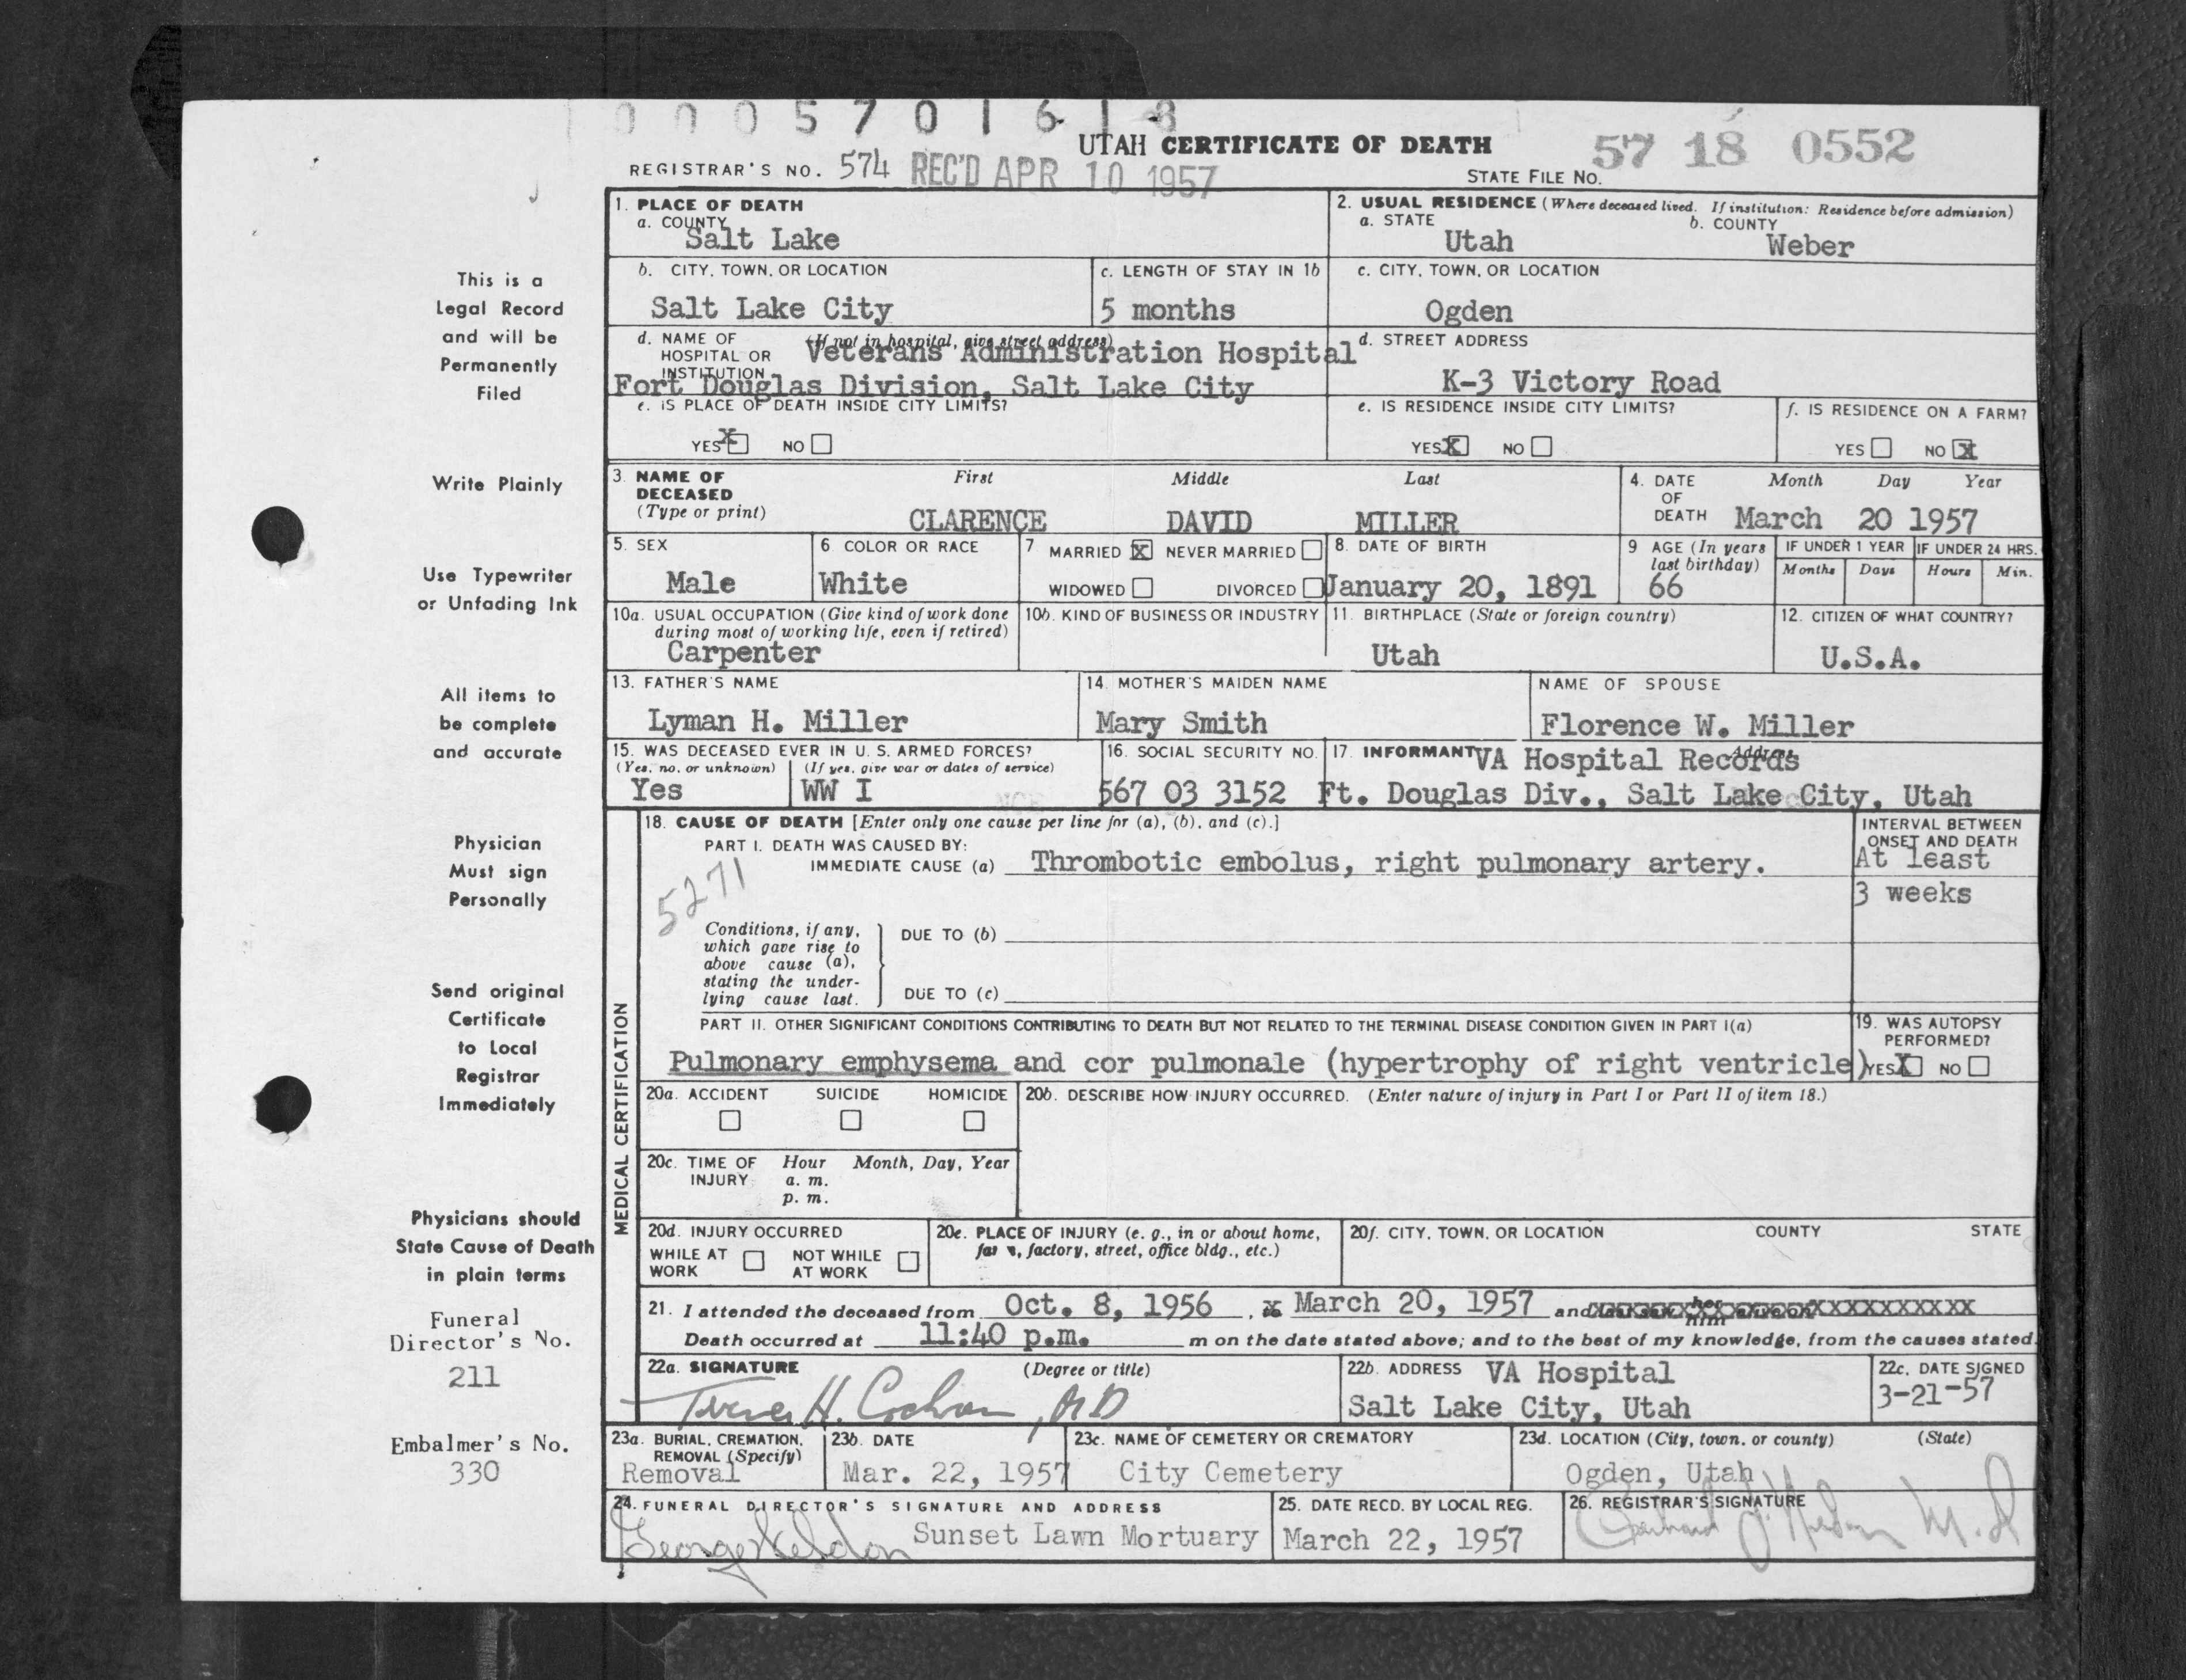 0005701618
UTAH CERTIFICATE OF DEATH
57 18 0552
REGISTRAR'S NO. 574 REC'D APR 10 1957
STATE FILE NO.
1. PLACE OF DEATH
a. COUNTY
Salt Lake
2. USUAL RESIDENCE (Where deceased lived. If institution: Residence before admission)
a. STATE
Utah
b. COUNTY
Weber
b. CITY, TOWN, OR LOCATION
Salt Lake City
c. LENGTH OF STAY IN 1b
5 months
c. CITY, TOWN, OR LOCATION
Ogden
d. NAME OF HOSPITAL OR INSTITUTION
(If not in hospital, give street address)
Veterans Administration Hospital
Fort Douglas Division, Salt Lake City
d. STREET ADDRESS
K-3 Victory Road
e. IS PLACE OF DEATH INSIDE CITY LIMITS?
YES X NO
e. IS RESIDENCE INSIDE CITY LIMITS?
YES X NO
f. IS RESIDENCE ON A FARM?
YES NO X
3. NAME OF DECEASED (Type or print)
First Middle Last
CLARENCE DAVID MILLER
4. DATE OF DEATH
Month Day Year
March 20 1957
5. SEX
Male
6 COLOR OR RACE
White
7 MARRIED X NEVER MARRIED
WIDOWED DIVORCED
8. DATE OF BIRTH
January 20, 1891
9 AGE (In years last birthday)
66
IF UNDER 1 YEAR
Months Days
IF UNDER 24 HRS.
Hours Min.
10a. USUAL OCCUPATION (Give kind of work done during most of working life, even if retired)
Carpenter
10b. KIND OF BUSINESS OR INDUSTRY
11. BIRTHPLACE (State or foreign country)
Utah
12. CITIZEN OF WHAT COUNTRY?
U.S.A.
13. FATHER'S NAME
Lyman H. Miller
14. MOTHER'S MAIDEN NAME
Mary Smith
NAME OF SPOUSE
Florence W. Miller
15. WAS DECEASED EVER IN U. S. ARMED FORCES?
(Yes, no, or unknown) (If yes, give war or dates of service)
Yes WW I
16. SOCIAL SECURITY NO.
567 03 3152
17. INFORMANT Address
VA Hospital Records
Ft. Douglas Div., Salt Lake City, Utah
MEDICAL CERTIFICATION
18. CAUSE OF DEATH [Enter only one cause per line for (a), (b), and (c).]
PART I. DEATH WAS CAUSED BY:
IMMEDIATE CAUSE (a) Thrombotic embolus, right pulmonary artery.
5271
INTERVAL BETWEEN ONSET AND DEATH
At least
3 weeks
Conditions, if any, which gave rise to above cause (a), stating the underlying cause last.
DUE TO (b)
DUE TO (c)
PART II. OTHER SIGNIFICANT CONDITIONS CONTRIBUTING TO DEATH BUT NOT RELATED TO THE TERMINAL DISEASE CONDITION GIVEN IN PART I(a)
Pulmonary emphysema and cor pulmonale (hypertrophy of right ventricle)
19. WAS AUTOPSY PERFORMED?
YES X NO
20a. ACCIDENT SUICIDE HOMICIDE
20b. DESCRIBE HOW INJURY OCCURRED. (Enter nature of injury in Part I or Part II of item 18.)
20c. TIME OF INJURY Hour Month, Day, Year
a. m.
p. m.
20d. INJURY OCCURRED
WHILE AT WORK NOT WHILE AT WORK
20e. PLACE OF INJURY (e. g., in or about home, farm, factory, street, office bldg., etc.)
20f. CITY, TOWN, OR LOCATION COUNTY STATE
21. I attended the deceased from Oct. 8, 1956, to March 20, 1957 and
Death occurred at 11:40 p.m. m on the date stated above; and to the best of my knowledge, from the causes stated.
22a. SIGNATURE (Degree or title)
H. Cochran, MD
22b. ADDRESS VA Hospital
Salt Lake City, Utah
22c. DATE SIGNED
3-21-57
23a. BURIAL, CREMATION, REMOVAL (Specify)
Removal
23b. DATE
Mar. 22, 1957
23c. NAME OF CEMETERY OR CREMATORY
City Cemetery
23d. LOCATION (City, town, or county) (State)
Ogden, Utah
24. FUNERAL DIRECTOR'S SIGNATURE AND ADDRESS
George Sunset Lawn Mortuary
25. DATE RECD. BY LOCAL REG.
March 22, 1957
26. REGISTRAR'S SIGNATURE
M.D
This is a
Legal Record
and will be
Permanently
Filed
Write Plainly
Use Typewriter
or Unfading Ink
All items to
be complete
and accurate
Physician
Must sign
Personally
Send original
Certificate
to Local
Registrar
Immediately
Physicians should
State Cause of Death
in plain terms
Funeral
Director's No.
211
Embalmer's No.
330